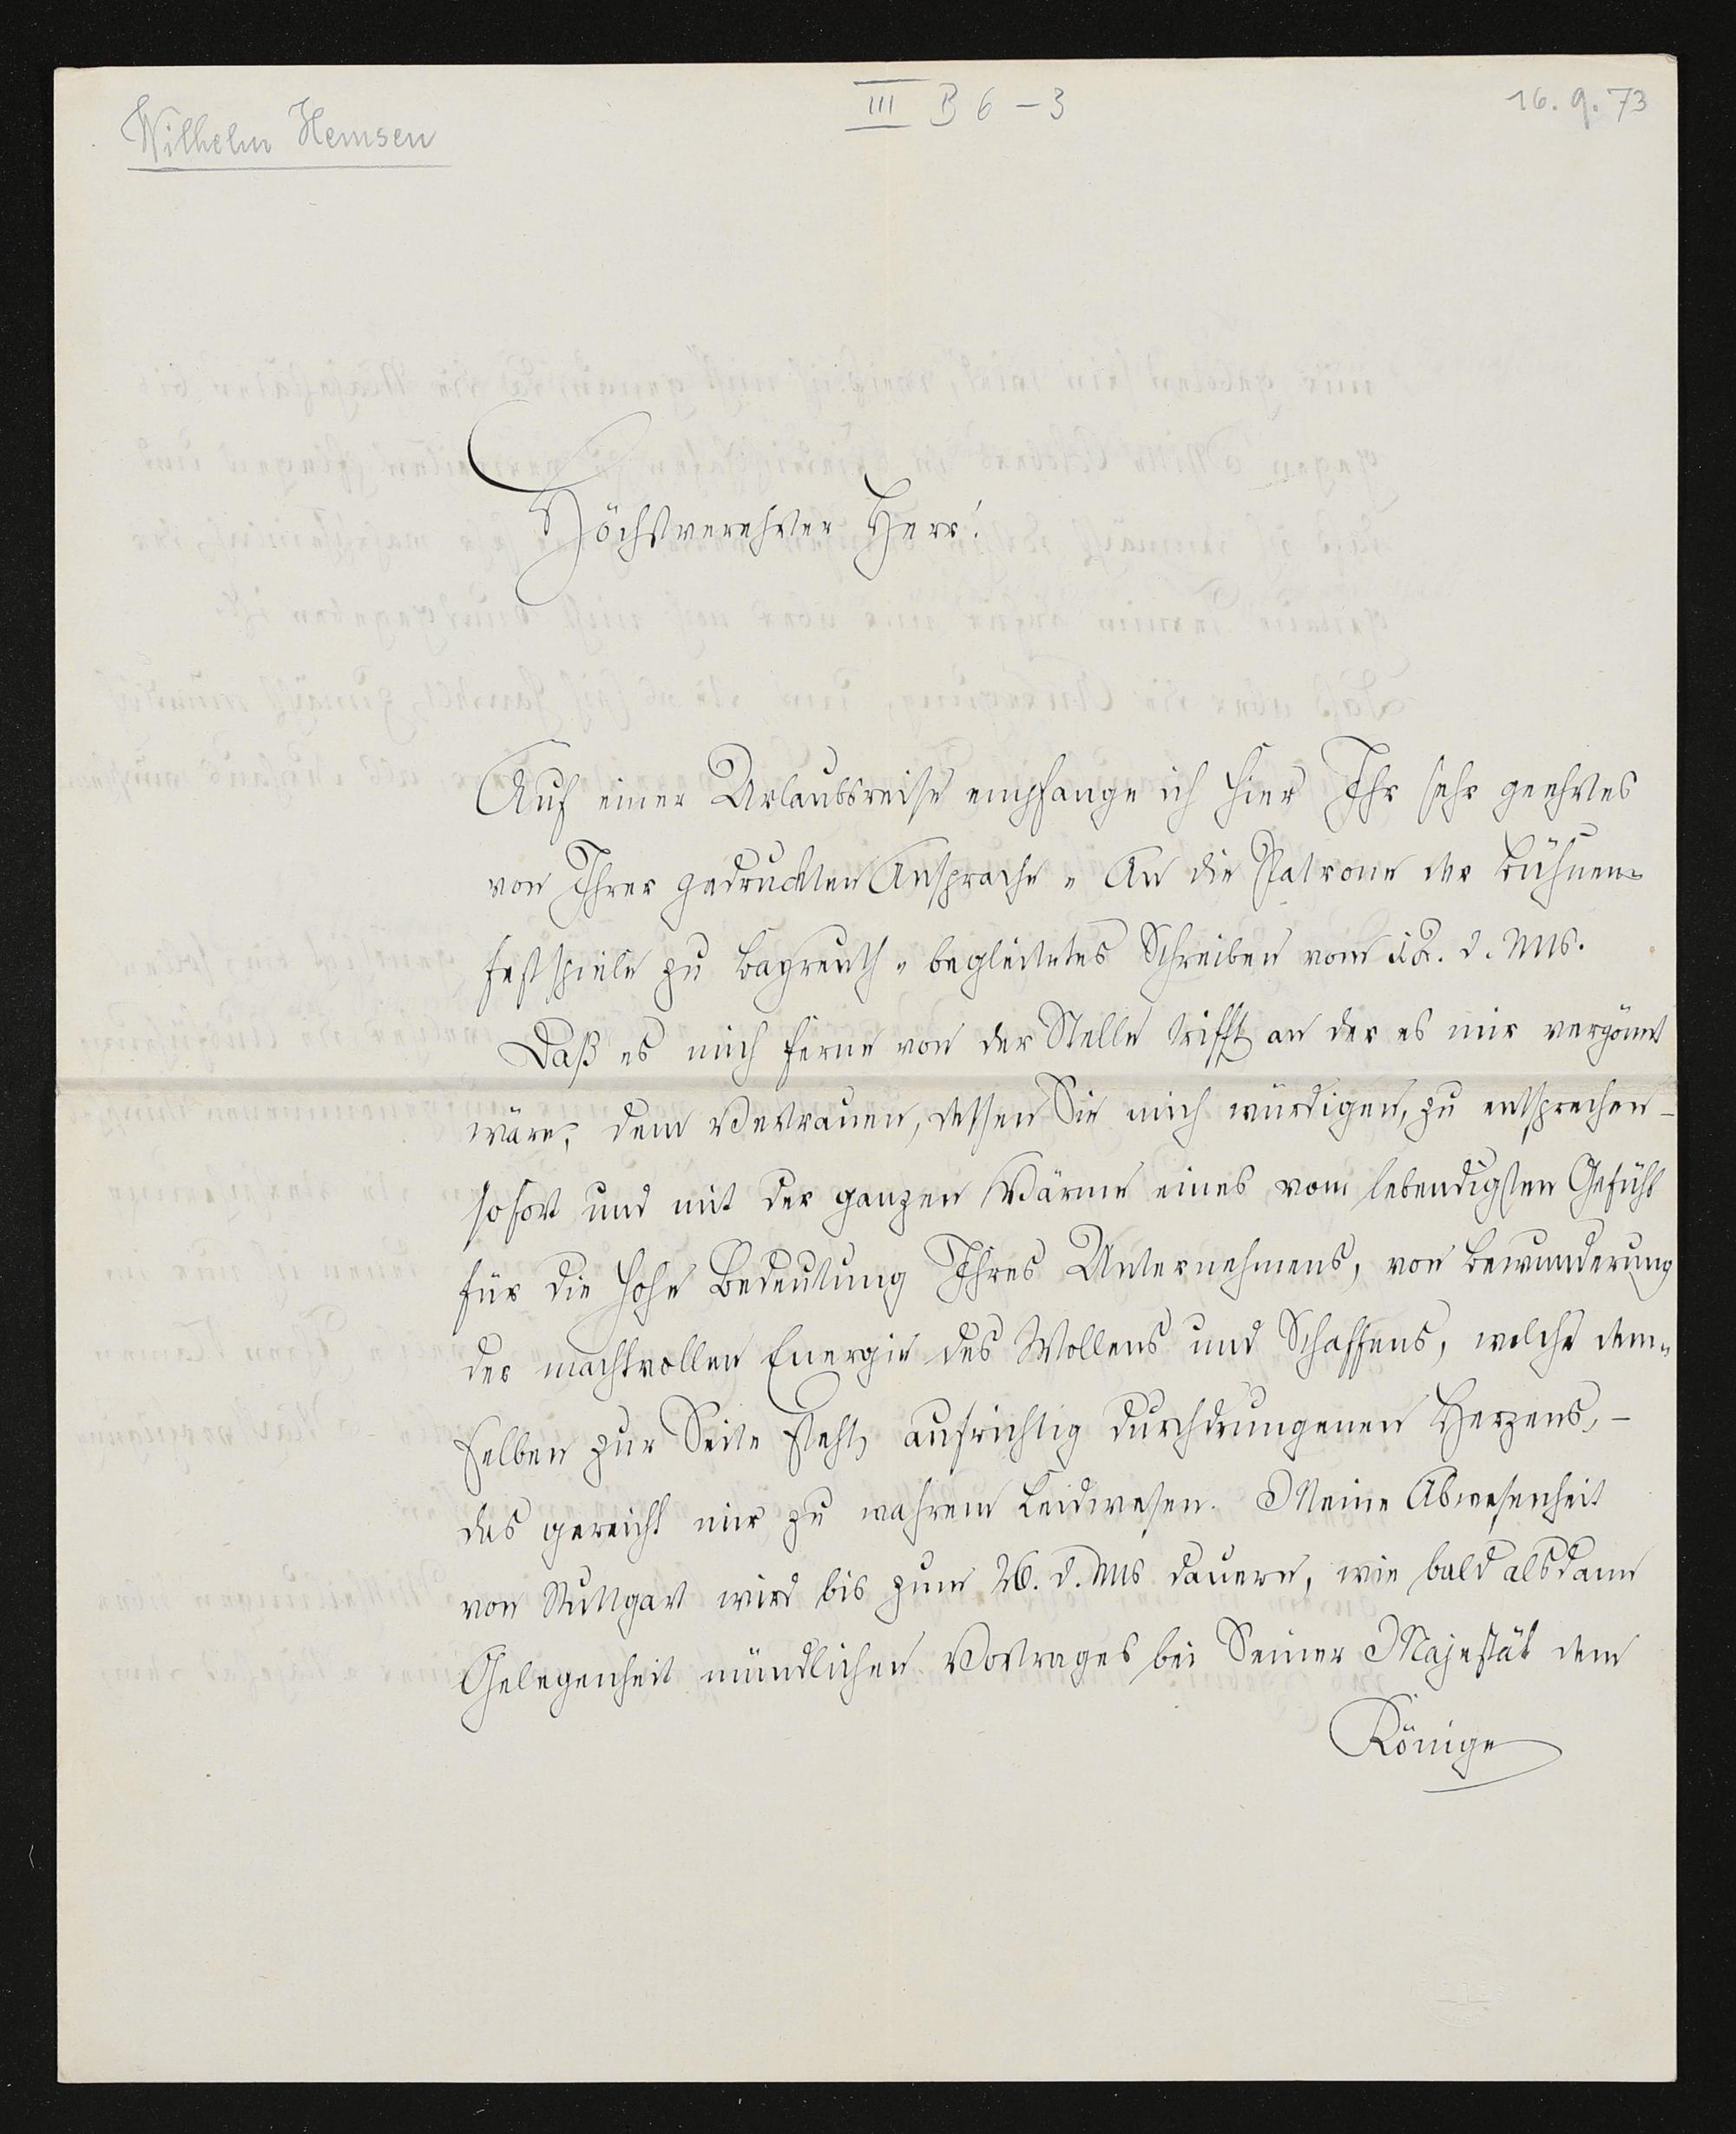 Wilhelm Hemsen
III B 6 – 3
16. 9. 73
Höchstverehrter Herr!
Auf einer Urlaubsreise empfange ich hier Ihr sehr geehrtes
von Ihrer gedruckten Ansprache „An die Patrone der Bühnen-
festspiele zu Bayreuth" begleitetes Schreiben vom 12. d. Mts.
Daß es mich ferne von der Stelle trifft, an der es mir vergönnt
wäre, dem Vertrauen, dessen Sie mich würdigen, zu entsprechen –
sofort und mit der ganzen Wärme eines vom lebendigsten Gefühl
für die hohe Bedeutung Ihres Unternehmens, von Bewunderung
der machtvollen Energie des Wollens und Schaffens, welche dem-
selben zur Seite steht, aufrichtig durchdrungenen Herzens, –
das gereicht mir zu wahrem Leidwesen. Meine Abwesenheit
von Stuttgart wird bis zum 26. d. Mts dauern, wie bald alsdann
Gelegenheit mündlichen Vortrages bei Seiner Majestät dem
Könige